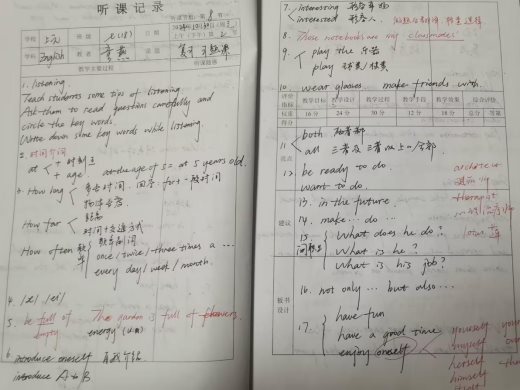 听课记录
学校
班级
课题
学科 English
教师
课型
教学主要过程
1. listening
Teach students some tips of listening
Ask them to read questions carefully and
circle the key words.
Write down some key words while listening.
2. 时间介词
at + 时刻点
+ age at the age of 5 = at 5 years old.
3. How long 多长时间. 回答: for + 一段时间
How far
时间+交通方式
How often
once / twice / three times a ...
every day / week / month.
4. /æ/ /ei/
5. be full of The garden is full of flowers.
empty energy
6. introduce oneself 自我介绍
introduce A to B
7. interesting 形容事物
interested 形容人
8. Those notebooks are my classmates'
9. play the 乐器
play 球类/棋类
10. wear glasses. make friends with.
评价指标
教学目标
教学设计
教学过程
教学手段
教学效果
综合评价
权重
16分
24分
30分
12分
18分
总分
等第
得分
优点
11. both 两者都
all 三者及三者以上/全部
12. be ready to do
want to do.
13. in the future.
建议
14. make ... do ...
15. What does he do?
What is he?
What is his job?
16. not only ... but also ...
板书设计
17. have fun
have a good time
enjoy oneself
yourself
myself
herself
himself